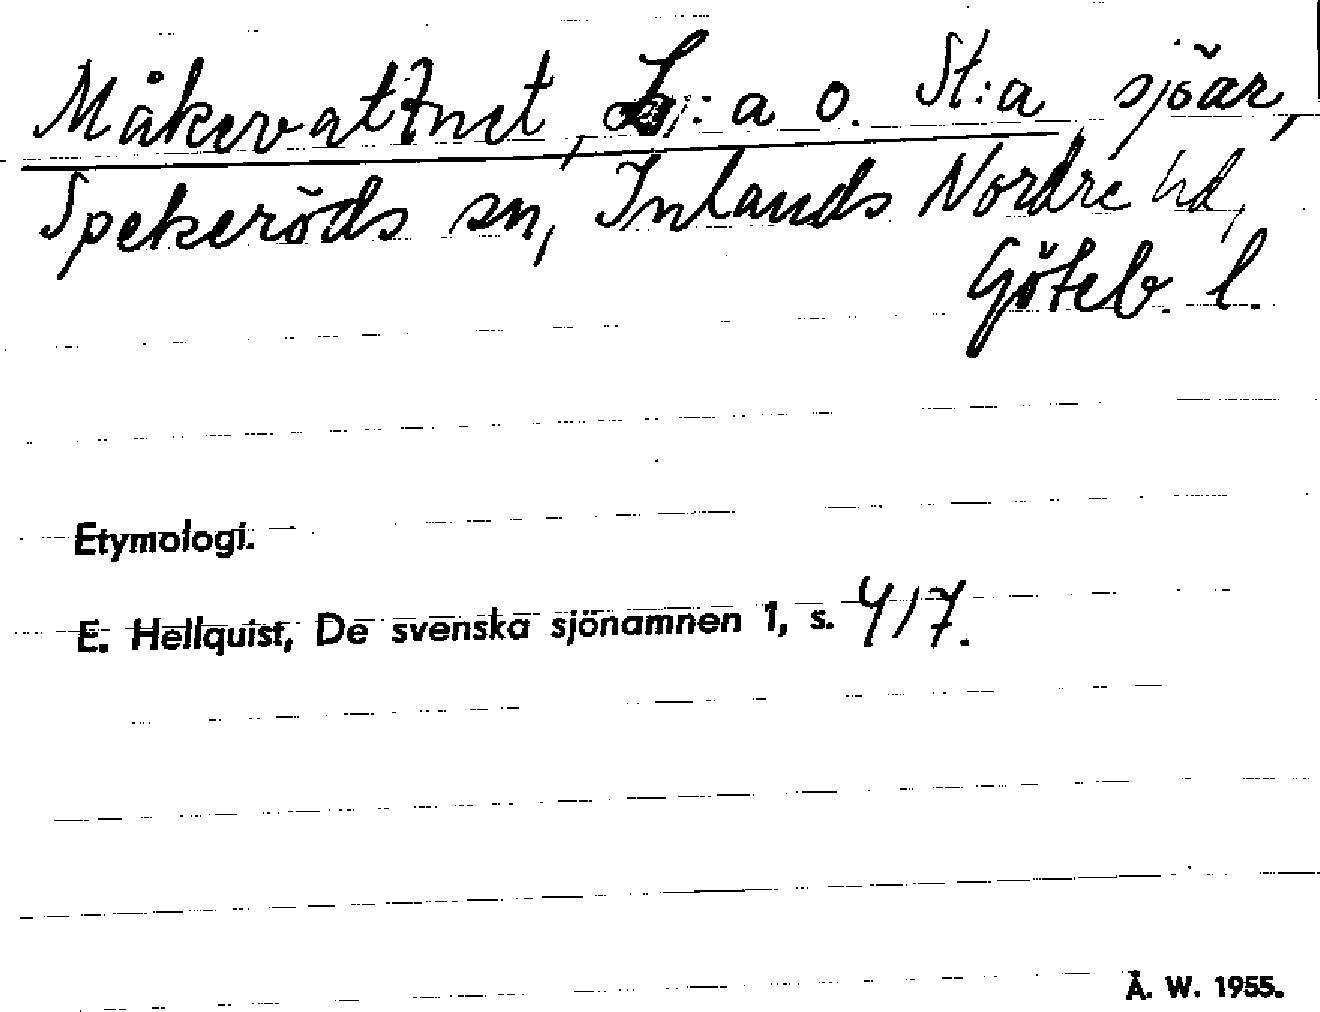 Måkevattnet, L:a o. St:a, sjöar,
Spekeröds sn, Inlands Nordre hd,
Göteb. l.
Etymologi.
E. Hellquist, De svenska sjönamnen 1, s. 417.
Å. W. 1955.